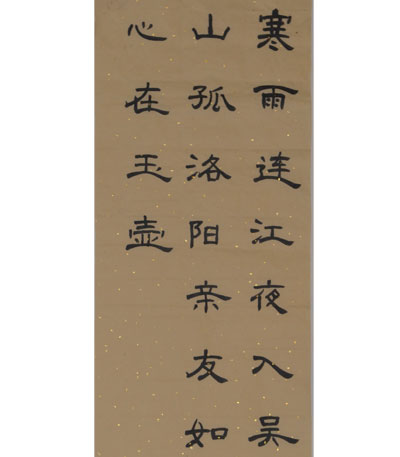 寒雨连江夜入吴
山孤洛阳亲友如
心在玉壶